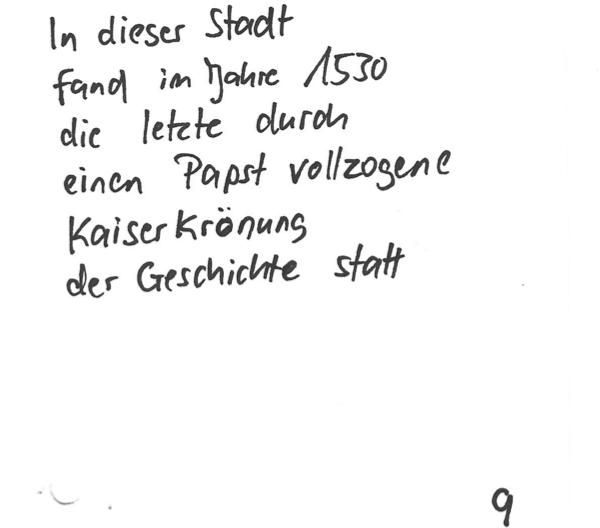 In dieser Stadt
fand im Jahre 1530
die letzte durch
einen Papst vollzogene
Kaiserkrönung
der Geschichte statt
9